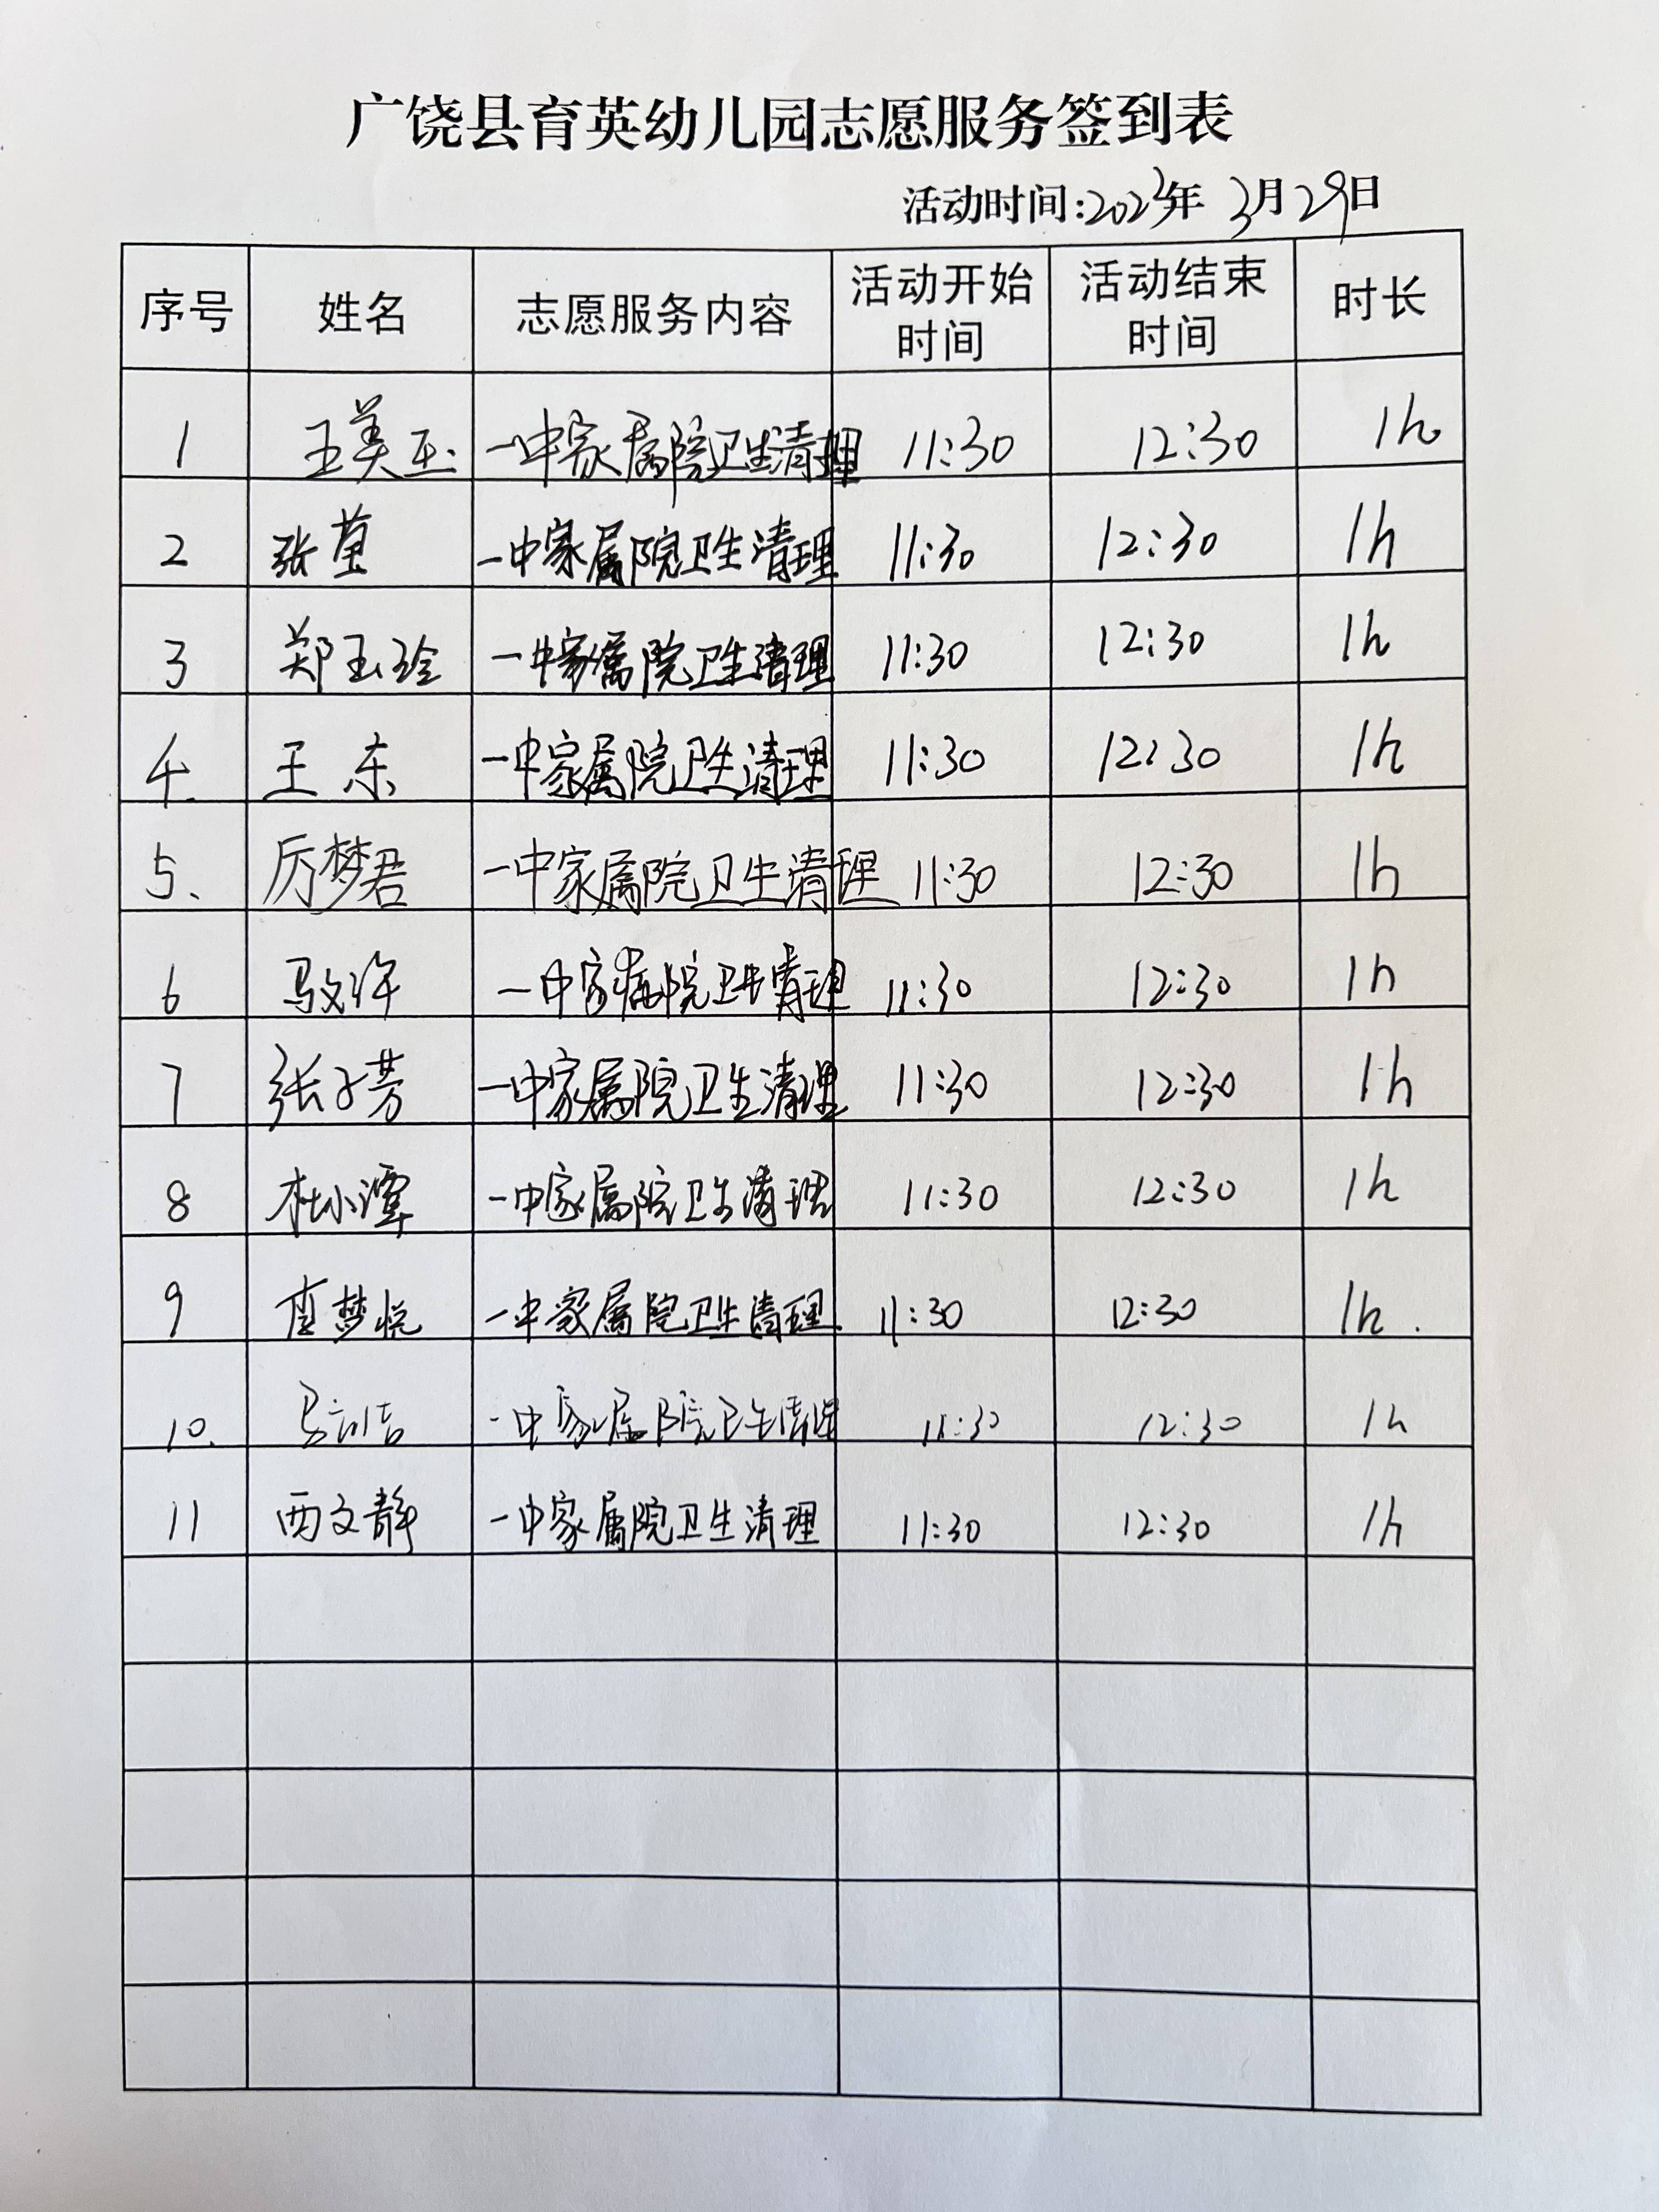 广饶县育英幼儿园志愿服务签到表
活动时间:2023年 3月29日
序号 姓名 志愿服务内容 活动开始时间 活动结束时间 时长
1 王美玉 一中家属院卫生清理 11:30 12:30 1h
2 张莹 一中家属院卫生清理 11:30 12:30 1h
3 郑玉玲 一中家属院卫生清理 11:30 12:30 1h
4. 王东 一中家属院卫生清理 11:30 12:30 1h
5、 厉梦君 一中家属院卫生清理 11:30 12:30 1h
6 一中家属院卫生清理 11:30 12:30 1h
7 张子芳 一中家属院卫生清理 11:30 12:30 1h
8 杜小潭 一中家属院卫生清理 11:30 12:30 1h
9 梦悦 一中家属院卫生清理 11:30 12:30 1h.
10. 一中家属院卫生清理 11:30 12:30 1h
11 西文静 一中家属院卫生清理 11:30 12:30 1h